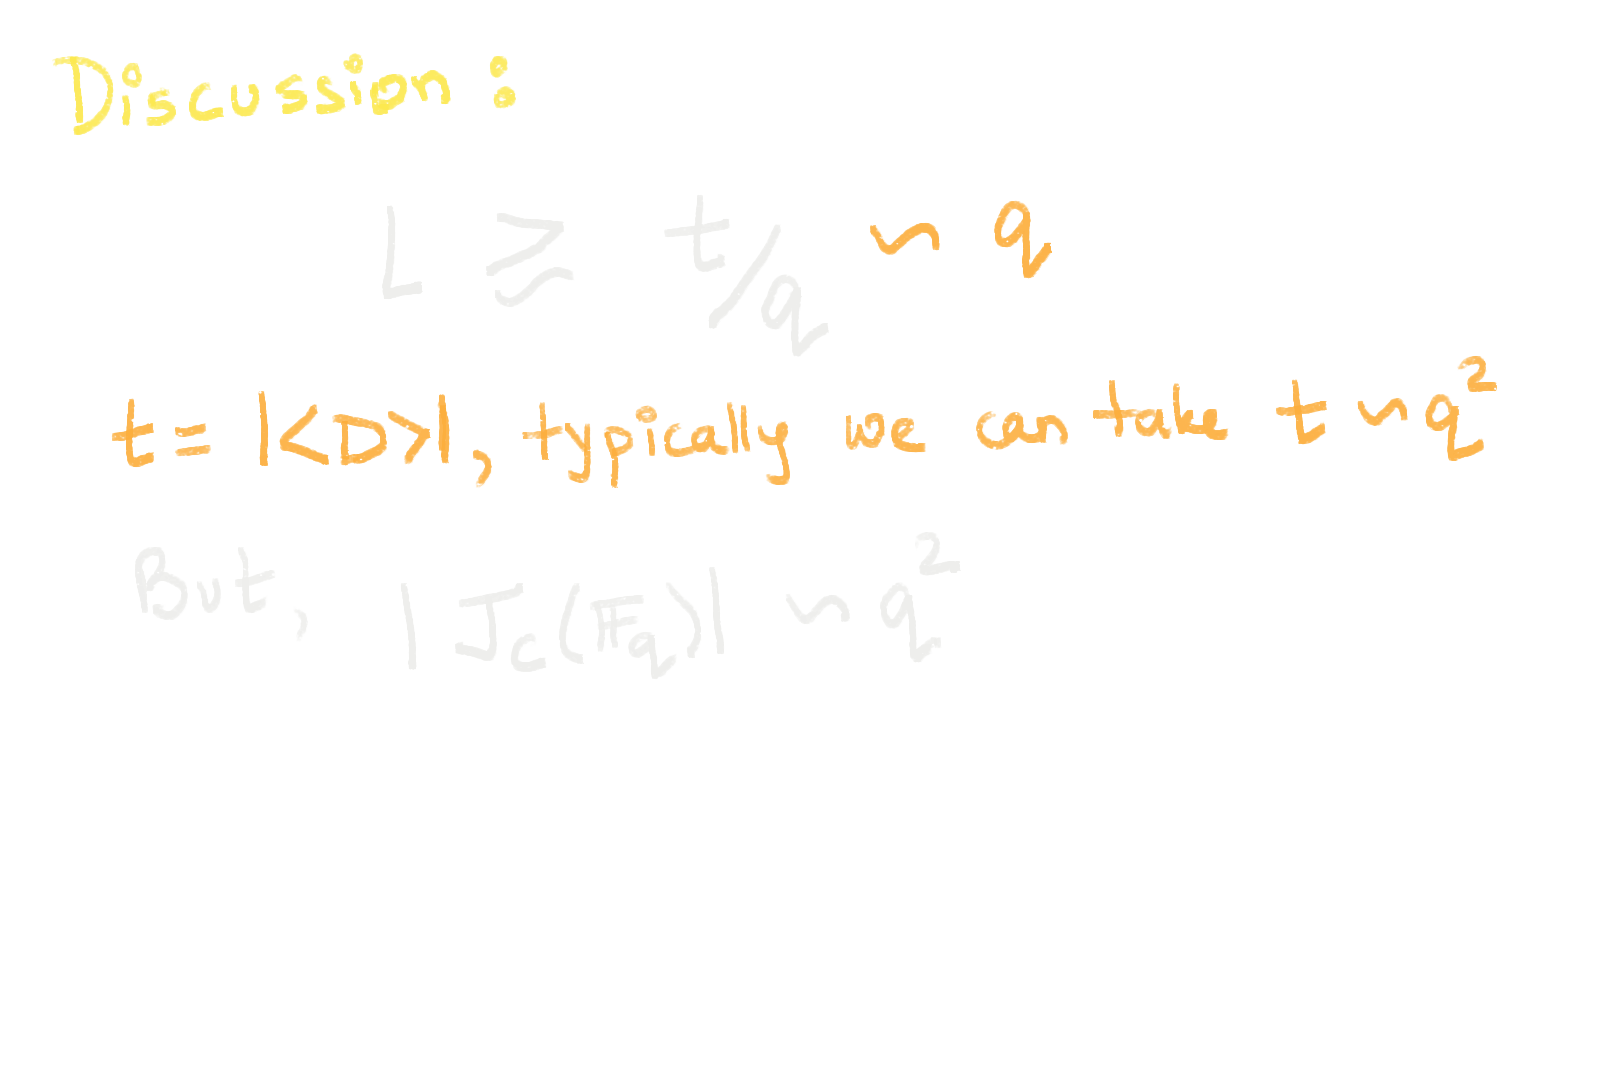 Discussion :
L ≳ t/q ~ q
t = |<D>|, typically we can take t ~ q²
But, |J_C(𝔽_q)| ~ q²